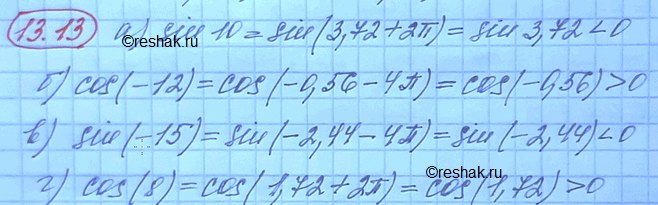 13.13 а) sin 10 = sin(3,72+2π) = sin 3,72 < 0
©reshak.ru
б) cos(-12) = cos(-0,56-4π) = cos(-0,56) > 0
в) sin(-15) = sin(-2,44-4π) = sin(-2,44) < 0
©reshak.ru
г) cos(8) = cos(1,72+2π) = cos(1,72) > 0